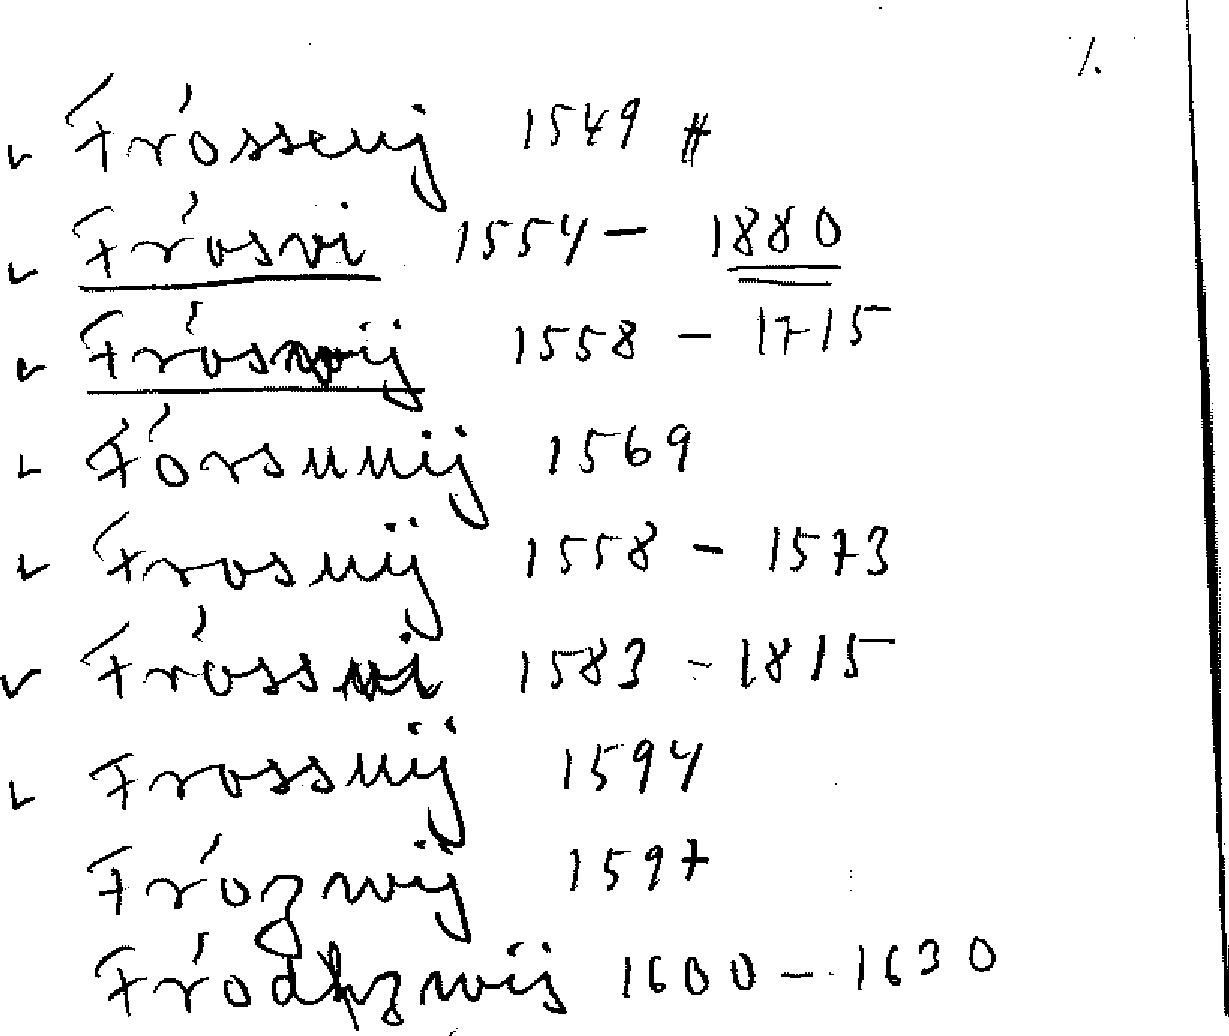 ⁒
✓ Fróssuij 1549 #
✓ Frósvi 1554 – 1880
✓ Frósvij 1558 – 1715
✓ Fórsuuij 1569
✓ Frosuij 1558 – 1573
✓ Fróssui 1583 – 1815
✓ Frossuij 1594
Frózwij 1597
Fródhzwij 1600 – 1630